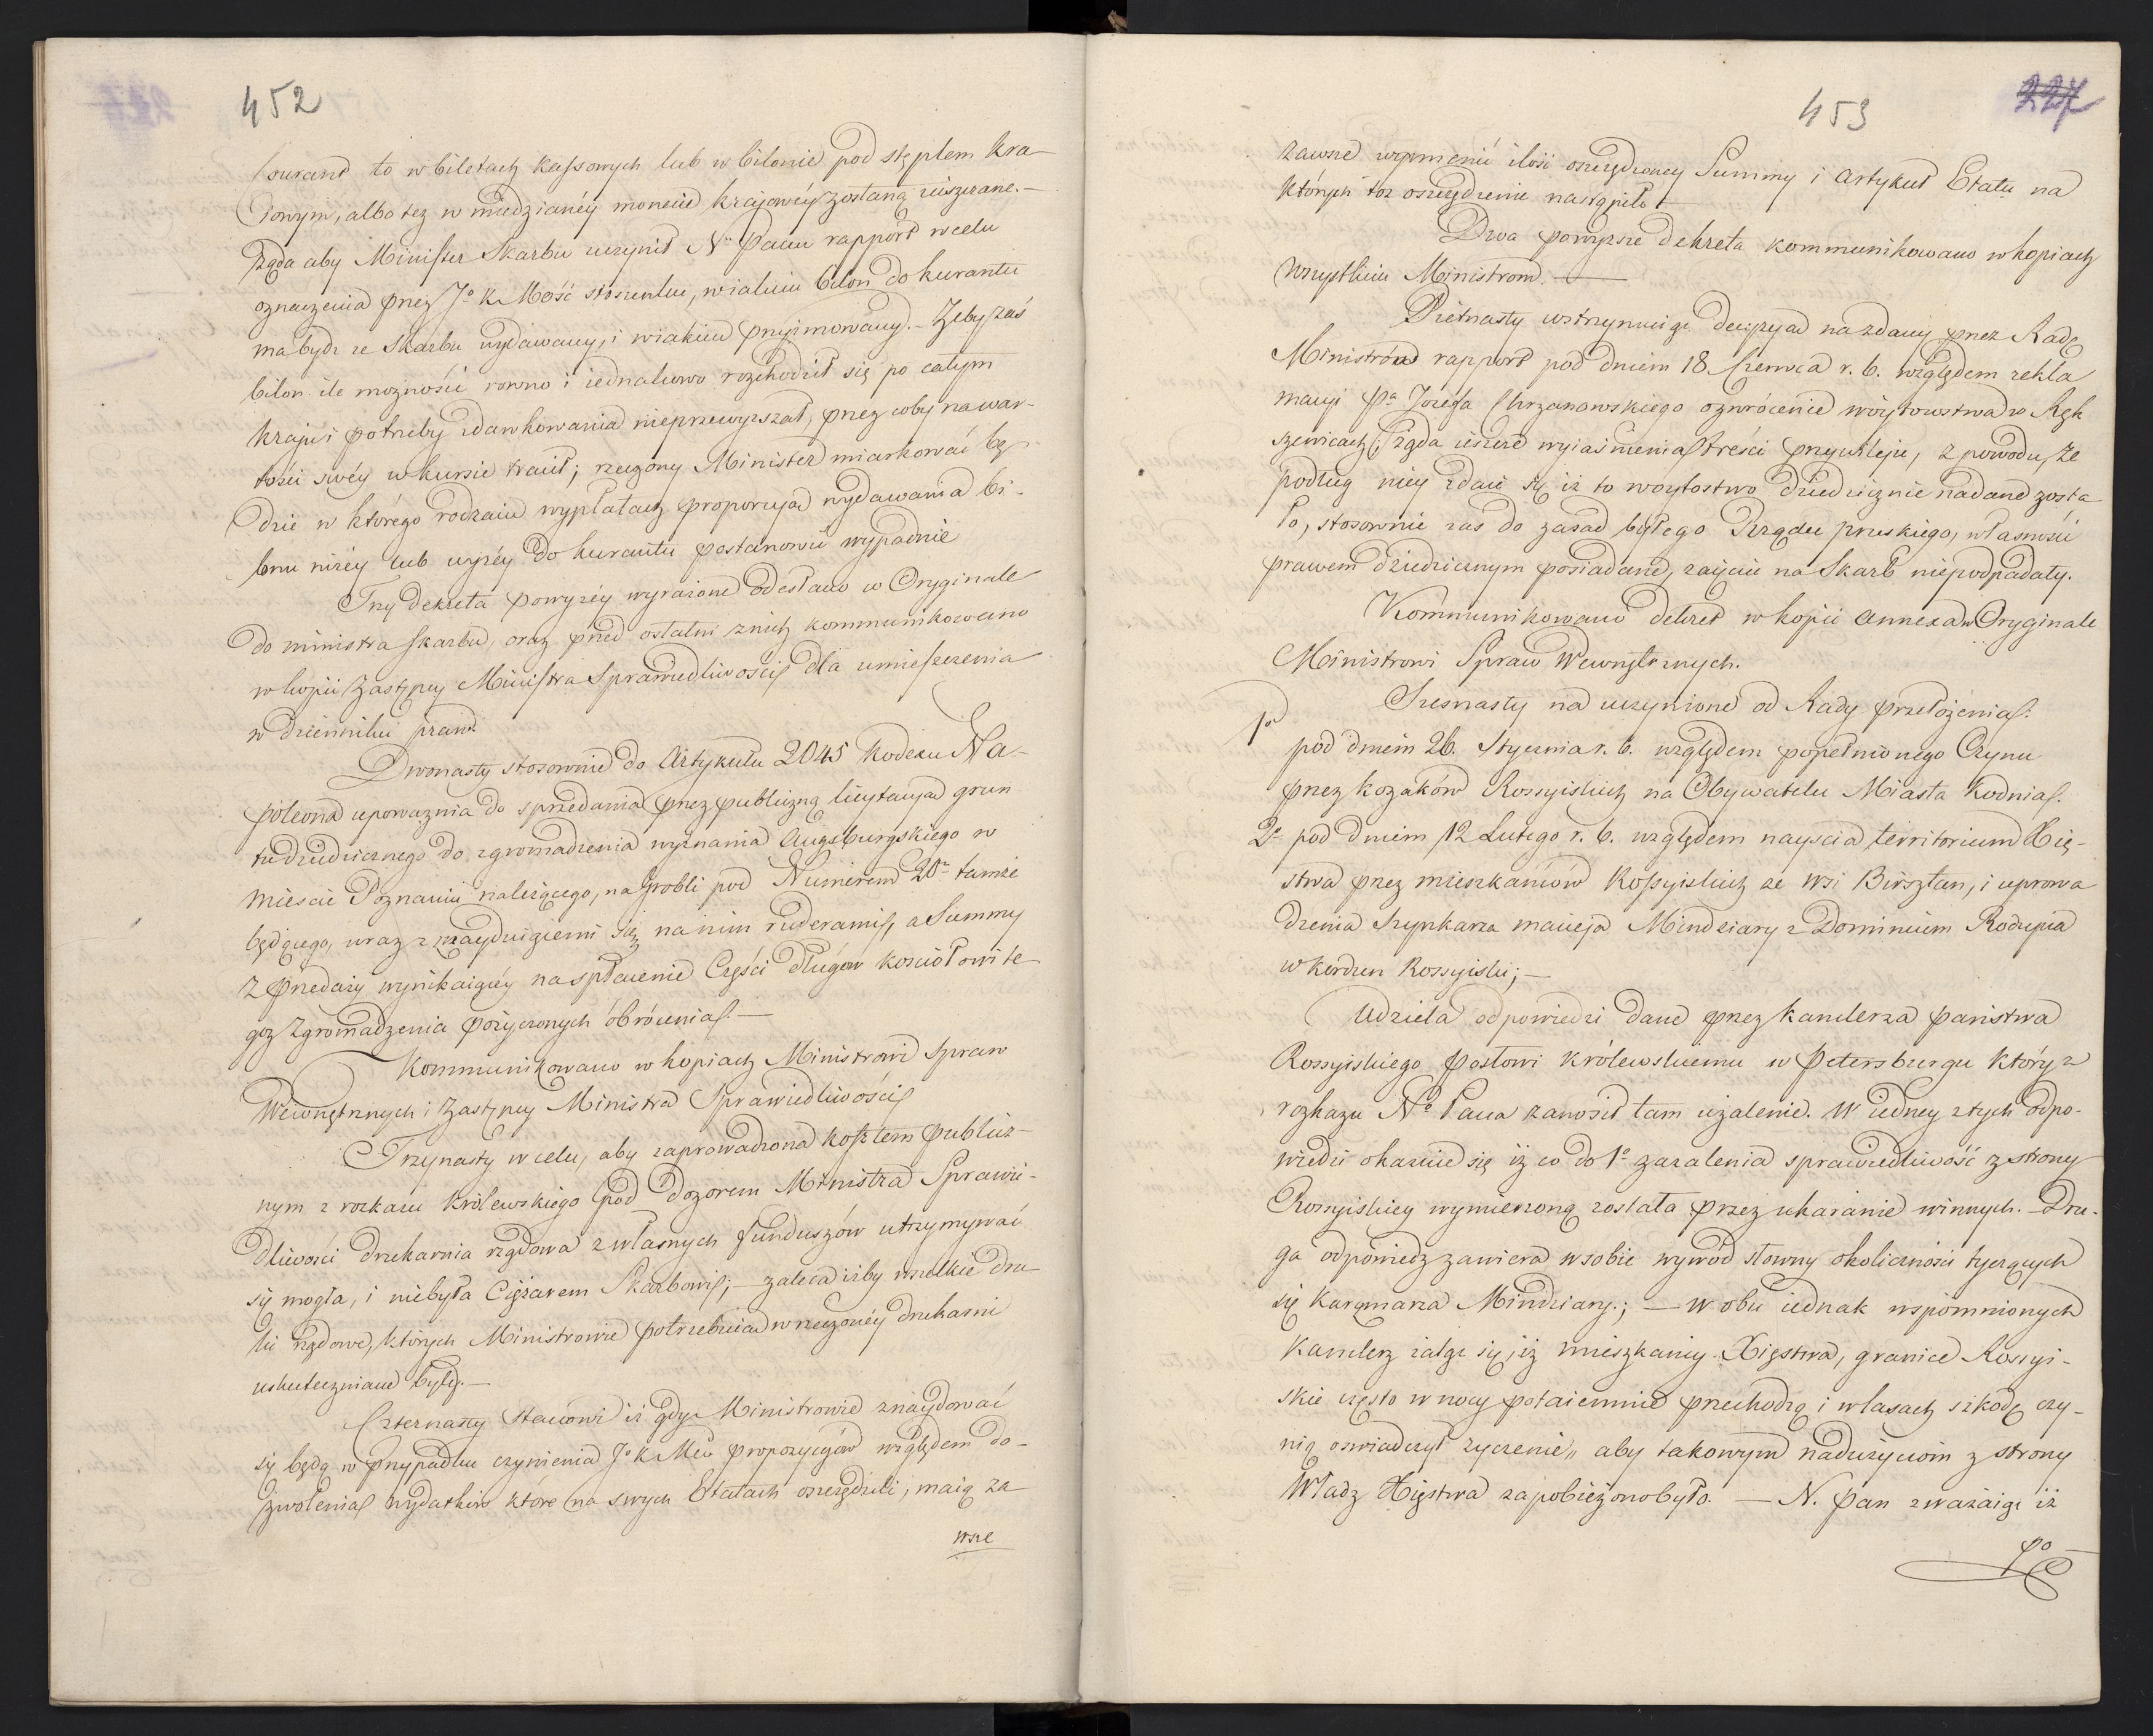 452
Courant to w biletach kassowych lub w bilonie pod stęplem kra-
iowym, albo tez w miedzianéy monecie krajowéy zostaną uiszczane.—
Żąda aby Minister Skarbu uczynił N. Panu rapport w celu
oznaczenia przez Jo K Mość stosunku, w iakim bilon do kurantu
ma bydz ze Skarbu wydawany, i w iakim przyimowany.— Zeby zaś
bilon ile mozności rowno i iednakowo rozchodził się po całym
kraju i potrzeby zdawkowania nieprzewyzszał, przez coby na war-
tości swéy w kursie tracił; rzeczony Minister miarkować bę-
dzie w którego rodzaiu wypłatach proporcyą wydawania bi-
lonu niżéy lub wyżéy do kurantu postanowić wypadnie
Trzy dekreta powyzéy wyrażone odesłano w Oryginale
do ministra skarbu, oraz przed ostatni z nich kommunikowano
w kopii Zastępcy Ministra Sprawiedliwości dla umieszczenia
w dzienniku praw.
Dwonasty stosownie do Artykułu 2045 Kodexu Na-
poleona upoważnia do sprzedania przez publiczną licytacyą grun-
tu dziedzicznego do zgromadzenia wyznania Augsburgskiego w
mieście Poznaniu należącego, na Grobli pod Numerem 20m tamże
będącego, wraz z znayduiącemi się na nim ruderami, a Summy
z przedaży wynikaiącéy na spłacenie Części długów kościołowi te-
goz Zgromadzenia pożyczonych obrócenia.—
Kommunikowano w kopiach Ministrowi Spraw
Wewnętrznych i Zastępcy Ministra Sprawiedliwości
Trzynasty w celu, aby zaprowadzona kosztem publicz-
nym z rozkazu Królewskiego pod dozorem Ministra Sprawie-
dliwości drukarnia rządowa z własnych funduszów utrzymywać
się mogła, i niebyła Ciężarem Skarbowi;— zaleca iżby wszelkie dru-
ki rządowe, których Ministrowie potrzebuią w rzeczonéy drukarni
uskuteczniane były.—
Czternasty Stanowi iż gdy Ministrowie znaydować
się będą w przypadku czynienia Jo K Mci propozycyów względem do-
zwolenia wydatków które na swych Etatach oszczędzili, maią za-
wsze
453
227
zawsze wymienić ilość oszczędzoney Summy i Artykuł Etatu na
których toż oszczędzenie nastąpiło—
Dwa powyzsze dekreta kommunikowano w kopiach
wszystkim Ministrom.—
Piętnasty wstrzymuiąc decyzyą na zdany przez Radę
Ministrów rapport pod dniem 18. Czerwca r. b. względem rekla-
macyi Pa Jozefa Chrzanowskiego o zwrócenie wóytowstwa w Ręk
szewicach, żąda ieszcze wyiaśnienia treści przywileju, z powodu, że
podług niey zdaie się iż to woytostwo dziedzicznie nadane zosta-
ło, stosownie zas do zasad byłego Rządu pruskiego, własności
prawem dziedzicznym posiadane, zaięciu na Skarb niepodpadały.
Kommunikowano dekret w kopii annexa w Oryginale
Ministrowi Spraw Wewnętrznych.
Szesnasty na uczynione od Rady przełożenia:
1o pod dniem 26. Stycznia r. b. względem popełnionego Czynu
przez kozaków Rossyiskich na Obywatelu Miasta Kodnia.
2o pod dniem 12 Lutego r. b. względem nayścia territorium Xię-
stwa przez mieszkańców Rossyiskich ze Wsi Birsztan, i uprowa-
dzenia szynkarza macieja Mindziary z Dominium Rodupia
w Kordon Rossyiski;—
Udziela odpowiedzi dane przez kanclerza państwa
Rossyiskiego Posłowi królewskiemu w Petersburgu który z
rozkazu No Pana zanosił tam użalenie. W iedney z tych odpo-
wiedzi okazuie się iż co do 1o zażalenia sprawiedliwość z strony
Rossyiskiey wymierzoną została przez ukaranie winnych.— Dru-
ga odpowiedz zawiera w sobie wywód słowny okoliczności tyczących
się Karczmarza Mindziary;— w obu iednak wspomnionych
Kanclerz żali się, iż mieszkańcy Xięstwa, granice Rossyi-
skie często w nocy potaiemnie przechodzą i w lasach szkodę czy-
nią oswiadczył życzenie„ aby takowym nadużyciom z strony
Władz Xięstwa zapobieżono było.— N. Pan zważaiąc iż
po